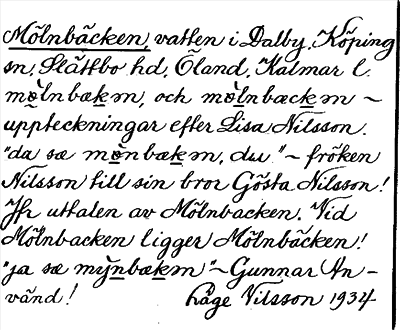 Mölnbäcken, vatten i Dalby, Köping
sn, Slättbo hd, Öland, Kalmar l.
mølnbækm, och mølnbæckm ~
uppteckningar efter Lisa Nilsson.
"da sæ mønbækm, du" ~ fröken
Nilsson till sin bror Gösta Nilsson!
Jfr uttalen av Mölnbacken. Vid
Mölnbacken ligger Mölnbäcken!
"ja sæ mynbækm" ~ Gunnar An-
vänd! Låge Nilsson 1934